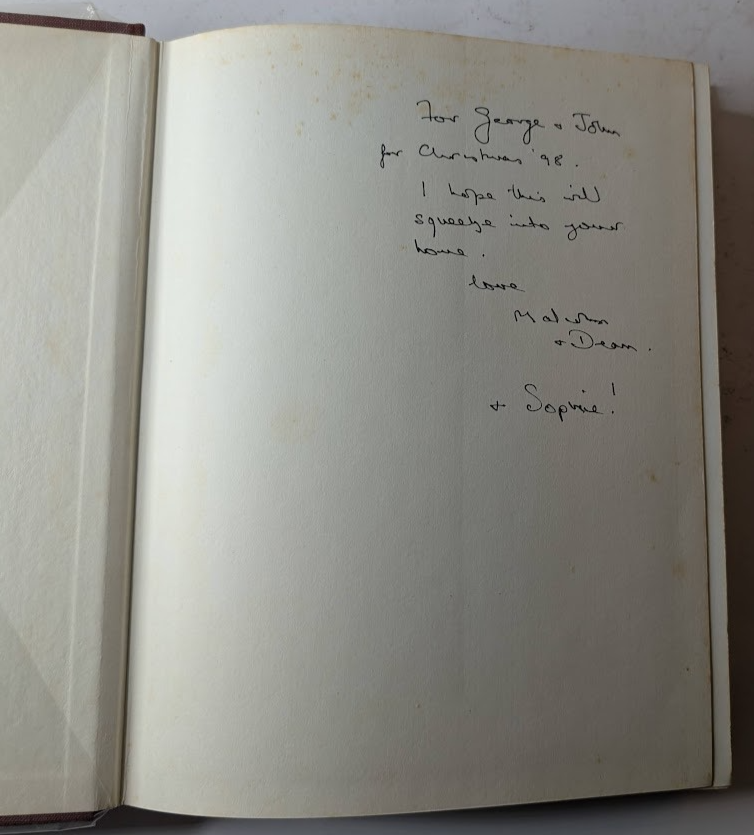 For George + John
for Christmas '98.
I hope this will
squeeze into your
home.
love
Malcolm
+ Dean.
+ Sophie!